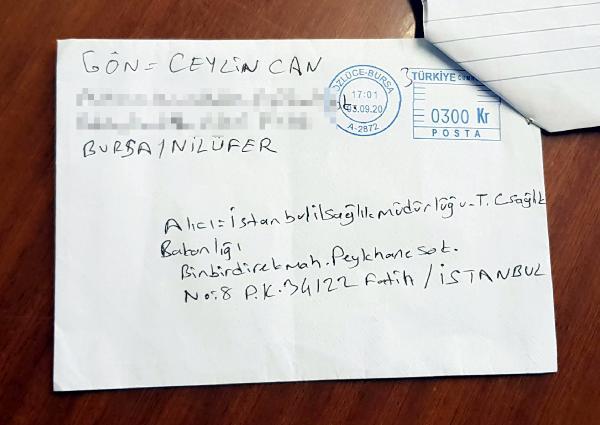 GÖN= CEYLİN CAN
BURSA/NİLÜFER
ÖZLÜCE-BURSA
17:01
03.09.20
A-2872
TÜRKİYE
0300 Kr
POSTA
Alıcı=İstanbul il sağlık müdürlüğü-T.C sağlık
Bakanlığı
Binbirdirek mah. Peykhane sok.
No:8 P.K.34122 Fatih / İSTANBUL